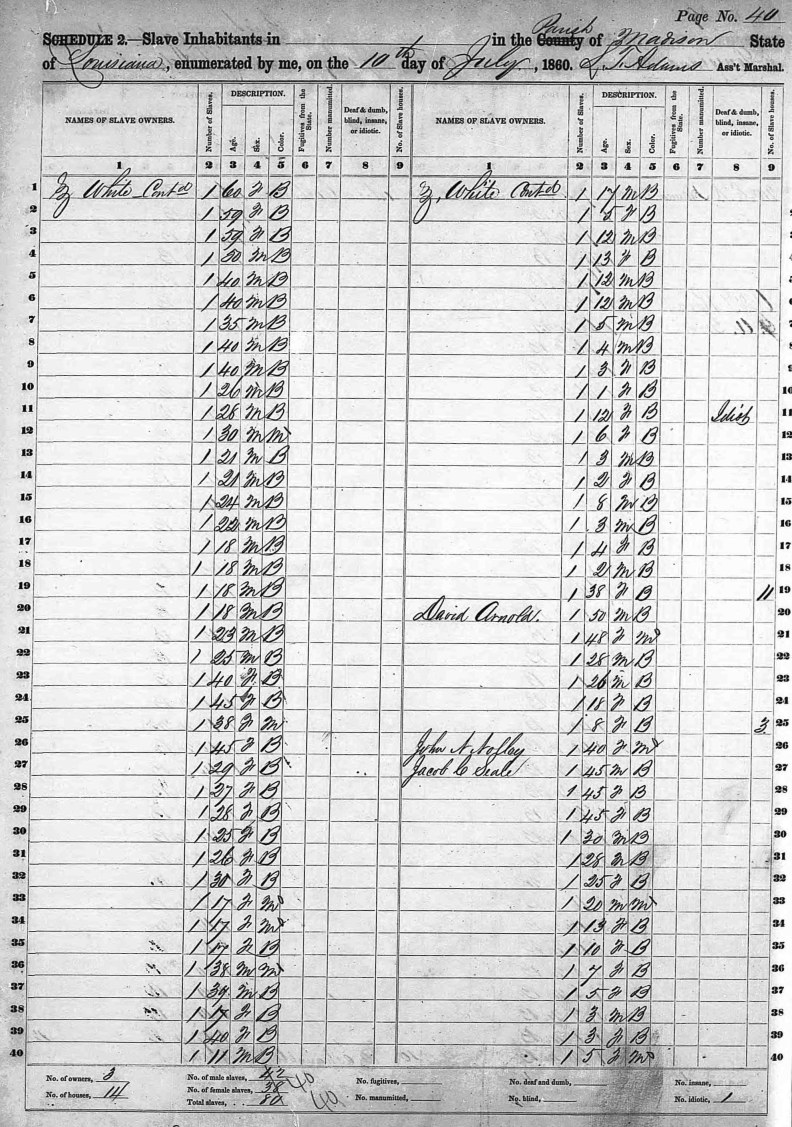 Page No. 40
SCHEDULE 2.—Slave Inhabitants in in the County Parish of Madison State
of Louisiana, enumerated by me, on the 10th day of July, 1860. L. T. Adams Ass't Marshal.
NAMES OF SLAVE OWNERS. Number of Slaves. DESCRIPTION. Age. Sex. Color. Fugitives from the State. Number manumitted. Deaf & dumb, blind, insane, or idiotic. No. of Slave houses. NAMES OF SLAVE OWNERS. Number of Slaves. DESCRIPTION. Age. Sex. Color. Fugitives from the State. Number manumitted. Deaf & dumb, blind, insane, or idiotic. No. of Slave houses.
1 2 3 4 5 6 7 8 9 1 2 3 4 5 6 7 8 9
1 White Cont'd 1 60 F B White Cont'd 1 17 M B
2 1 59 F B 1 5 F B 2
3 1 59 F B 1 12 M B 3
4 1 50 M B 1 13 F B 4
5 1 40 M B 1 12 M B 5
6 1 40 M B 1 12 M B 6
7 1 35 M B 1 5 M B 7
8 1 40 M B 1 4 M B 8
9 1 40 M B 1 3 F B 9
10 1 26 M B 1 1 F B 10
11 1 28 M B 1 12 F B Idiot 11
12 1 30 M M 1 6 F B 12
13 1 21 M B 1 3 M B 13
14 1 21 M B 1 2 F B 14
15 1 24 M B 1 8 M B 15
16 1 22 M B 1 3 M B 16
17 1 18 M B 1 4 F B 17
18 1 18 M B 1 2 M B 18
19 1 18 M B 1 38 F B 11 19
20 1 18 M B David Arnold. 1 50 M B 20
21 1 23 M B 1 48 F M 21
22 1 25 M B 1 28 M B 22
23 1 40 F B 1 26 M B 23
24 1 45 F B 1 18 F B 24
25 1 38 F M 1 8 F B 3 25
26 1 45 F B John N 1 40 F M 26
27 1 29 F B Jacob C Seale 1 45 M B 27
28 1 27 F B 1 45 F B 28
29 1 28 F B 1 45 F B 29
30 1 25 F B 1 30 M B 30
31 1 26 F B 1 28 M B 31
32 1 30 F B 1 25 F B 32
33 1 17 F M 1 20 M M 33
34 1 17 F M 1 13 F B 34
35 1 17 F B 1 10 F B 35
36 1 38 M M 1 7 F B 36
37 1 39 M B 1 5 F B 37
38 1 17 F B 1 3 M B 38
39 1 40 F B 1 3 F B 39
40 1 11 M B 1 5 F M 40
No. of owners, 3 No. of male slaves, 42 No. fugitives, No. deaf and dumb, No. insane,
No. of houses, 14 No. of female slaves, 38 40 No. manumitted, No. blind, No. idiotic, 1
Total slaves, 80 40